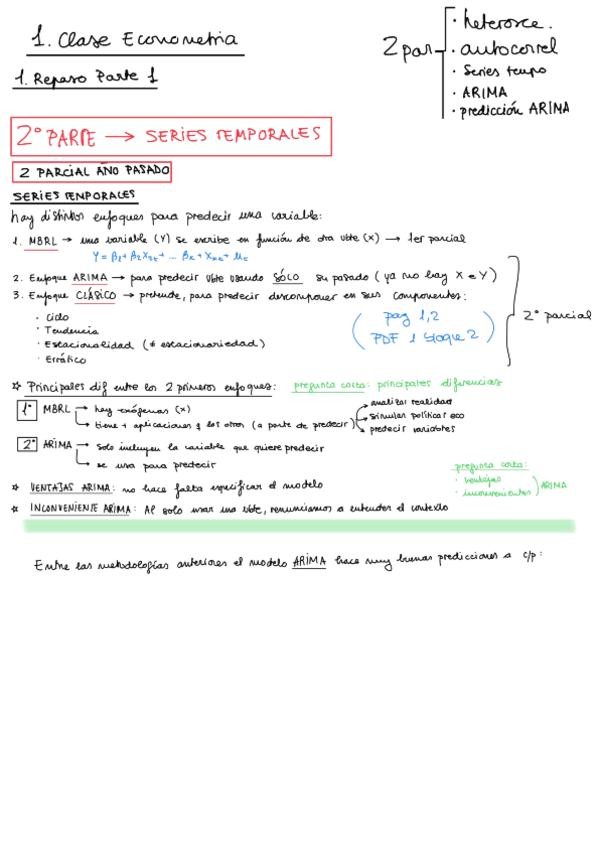 1. Clase Econometria
1. Repaso Parte 1
2 par
· heterosce.
· autocorrel
· Series tempo
· ARIMA
· predicción ARIMA
2º PARTE → SERIES TEMPORALES
2 PARCIAL AÑO PASADO
SERIES TEMPORALES
hay distintos enfoques para predecir una variable:
1. MBRL → una variable (Y) se escribe en función de otra vble (x) → 1er parcial
2. Enfoque ARIMA → para predecir vble usando SÓLO su pasado (ya no hay X e Y)
3. Enfoque CLÁSICO → pretende, para predecir descomponer en sus componentes:
· Ciclo
· Tendencia
· Estacionalidad (≠ estacionariedad)
· Errático
(pag 1,2
PDF 1 bloque 2)
2º parcial
☆ Principales dif entre los 2 primeros enfoques: pregunta corta: principales diferencias
1º MBRL → hay exógenas (x)
→ tiene + aplicaciones q los otros (a parte de predecir)
→ analizar realidad
→ simular políticas eco
→ predecir variables
2º ARIMA → solo incluyen la variable que quiere predecir
→ se usa para predecir
pregunta corta:
· ventajas
· inconvenientes
ARIMA
☆ VENTAJAS ARIMA: no hace falta especificar el modelo
☆ INCONVENIENTE ARIMA: Al solo usar una vble, renunciamos a entender el contexto
Entre las metodologías anteriores el modelo ARIMA hace muy buenas predicciones a c/p: